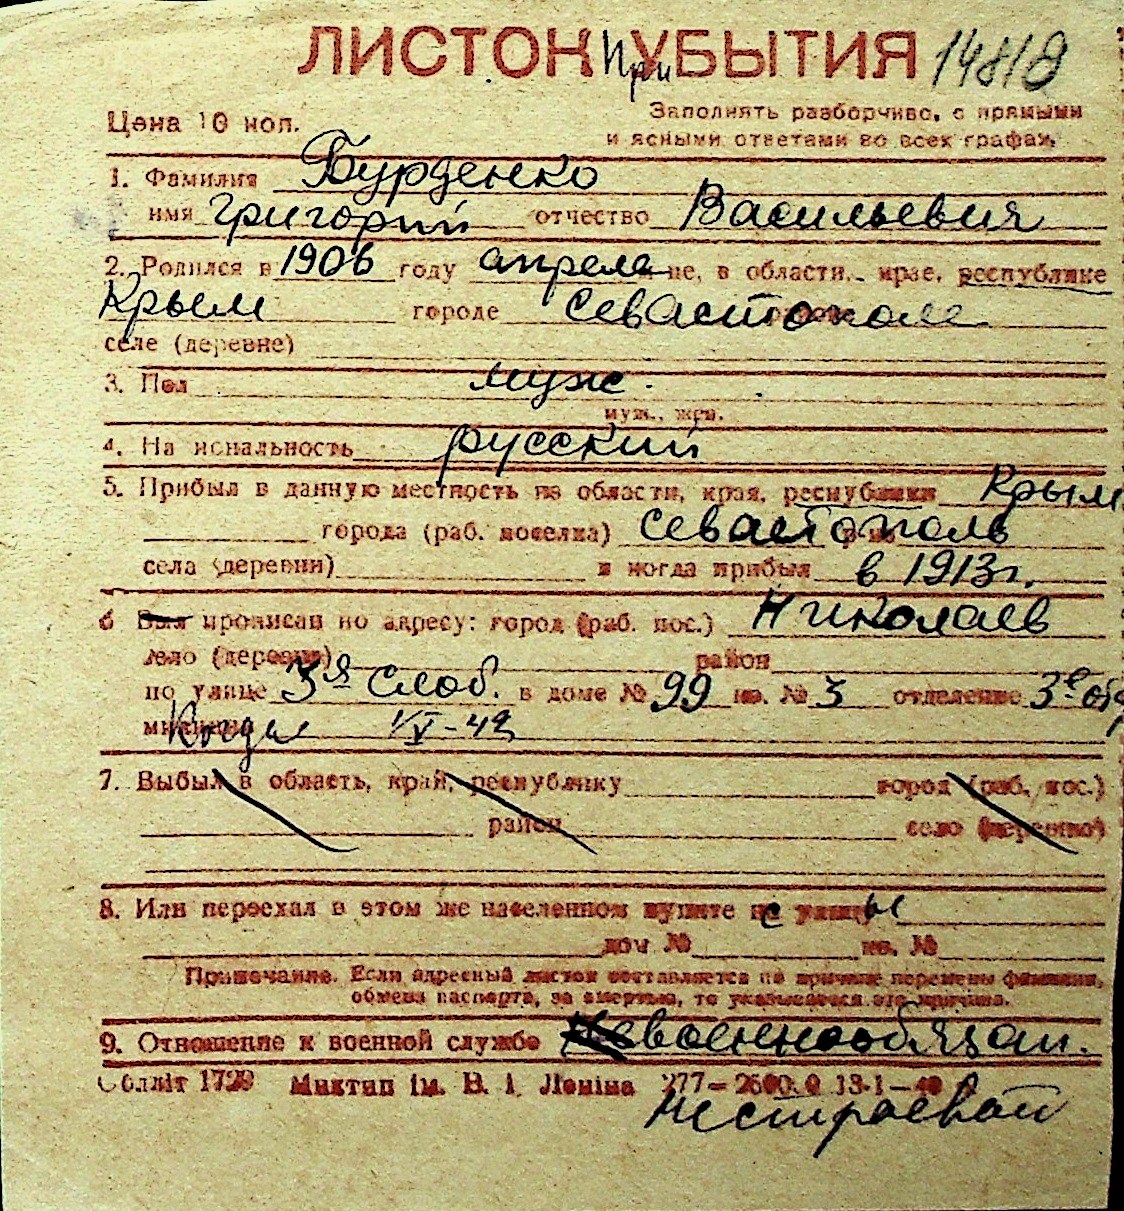 ЛИСТОК При УБЫТИЯ 14818
Цена 10 коп.
Заполнять разборчиво, с прямыми
и ясными ответами во всех графах.
1. Фамилия Бурденко
имя Григорий отчество Васильевия
2. Родился в 1906 году апреле м-це, в области, крае, республике
Крым городе Севастополе
селе (деревне)
3. Пол муж.
муж., жен.
4. Национальность русский
5. Прибыл в данную местность из области, края, республики Крым
города (раб. поселка) Севастополь
села (деревни) и когда прибыл в 1913 г.
6 Был прописан по адресу: город (раб. пос.) Николаев
село (деревня) район
по улице 3я Слоб. в доме № 99 кв. № 3 отделение 3е от
милиции Когда 1/V-42
7. Выбыл в область, край, республику город (раб. пос.)
район село (деревню)
8. Или переехал в этом же населенном пункте с улицы
дом № кв. №
Примечание. Если адресный листок составляется по причине перемены фамилии,
обмена паспорта, за смертью, то указывается эта причина.
9. Отношение к военной службе военнообязан.
Обліт 1729 Миктип ім. В. І. Леніна 277—2600.0 13-1—40
нестроевой